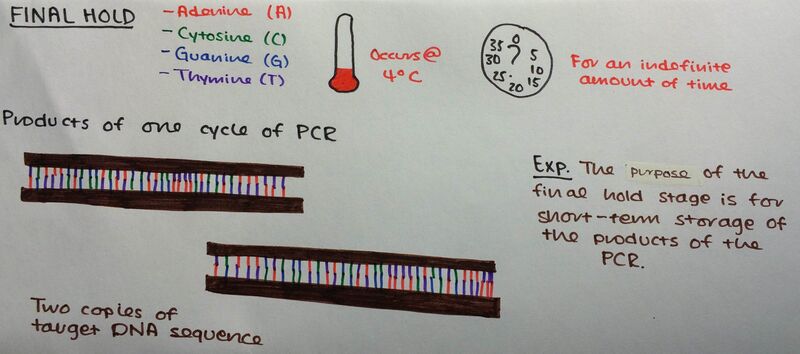 FINAL HOLD
- Adenine (A)
- Cytosine (C)
- Guanine (G)
- Thymine (T)
Occurs @
4°C
0
5
10
15
20
25
30
35
?
For an indefinite
amount of time
Products of one cycle of PCR
Exp. The purpose of the
final hold stage is for
short-term storage of
the products of the
PCR.
Two copies of
target DNA sequence